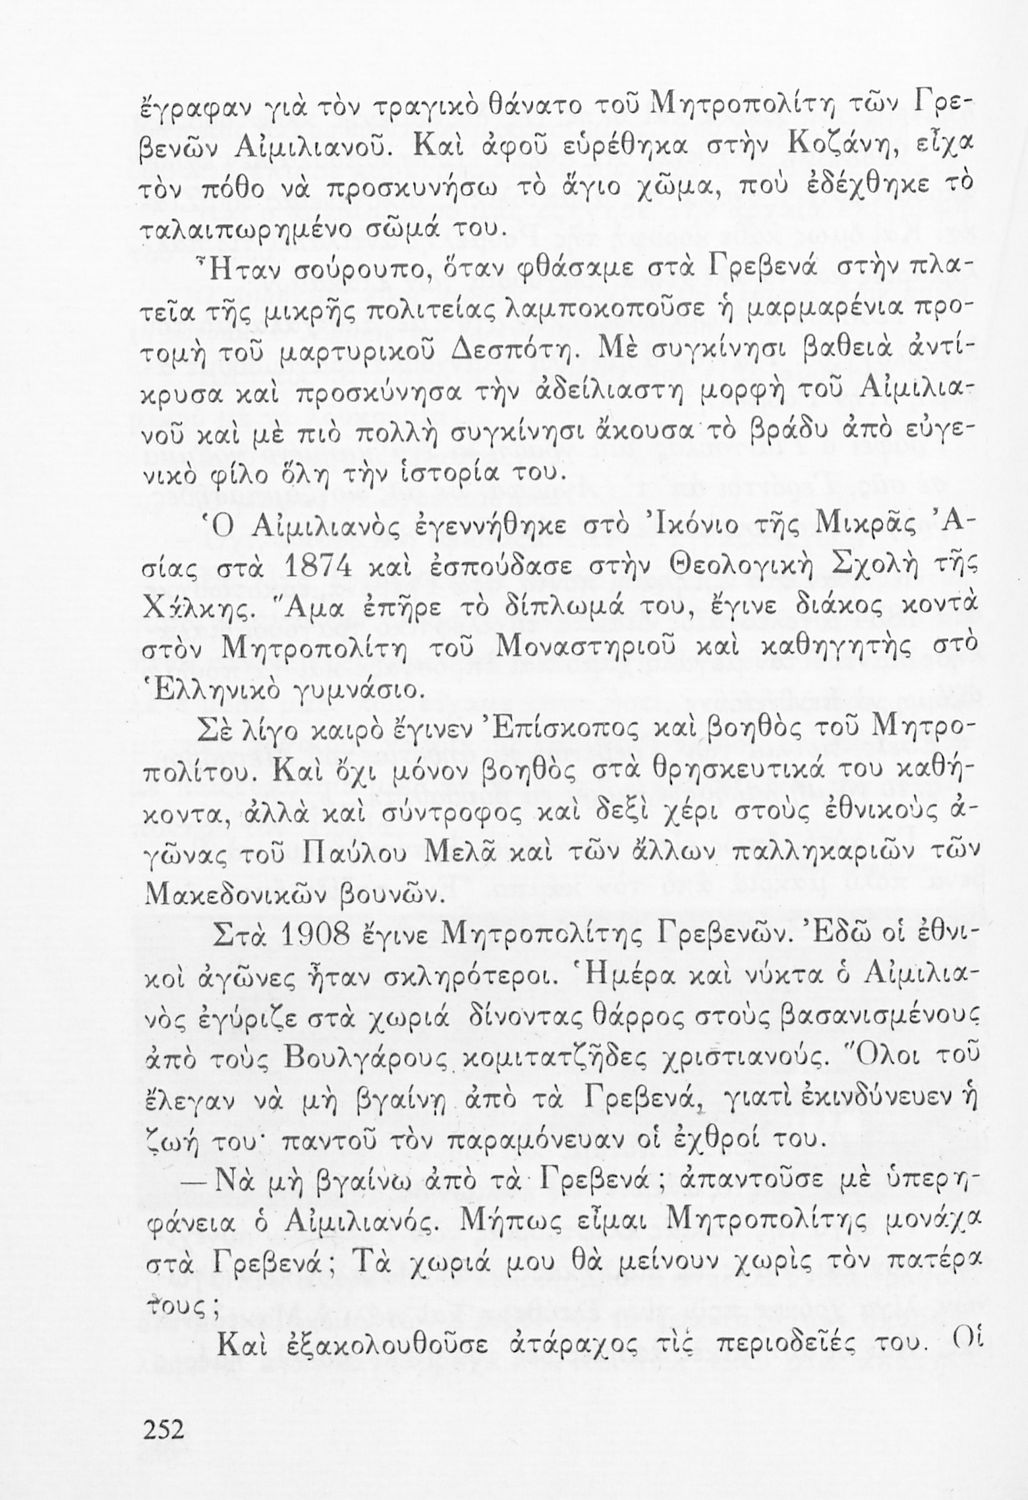 ἔγραφαν γιὰ τὸν τραγικὸ θάνατο τοῦ Μητροπολίτη τῶν Γρε-
βενῶν Αἰμιλιανοῦ. Καὶ ἀφοῦ εὑρέθηκα στὴν Κοζάνη, εἶχα
τὸν πόθο νὰ προσκυνήσω τὸ ἅγιο χῶμα, ποὺ ἐδέχθηκε τὸ
ταλαιπωρημένο σῶμά του.
Ἦταν σούρουπο, ὅταν φθάσαμε στὰ Γρεβενά στὴν πλα-
τεῖα τῆς μικρῆς πολιτείας λαμποκοποῦσε ἡ μαρμαρένια προ-
τομὴ τοῦ μαρτυρικοῦ Δεσπότη. Μὲ συγκίνησι βαθειὰ ἀντί-
κρυσα καὶ προσκύνησα τὴν ἀδείλιαστη μορφὴ τοῦ Αἰμιλια-
νοῦ καὶ μὲ πιὸ πολλὴ συγκίνησι ἄκουσα τὸ βράδυ ἀπὸ εὐγε-
νικὸ φίλο ὅλη τὴν ἱστορία του.
Ὁ Αἰμιλιανὸς ἐγεννήθηκε στὸ Ἰκόνιο τῆς Μικρᾶς Ἀ-
σίας στὰ 1874 καὶ ἐσπούδασε στὴν Θεολογικὴ Σχολὴ τῆς
Χάλκης. Ἅμα ἐπῆρε τὸ δίπλωμά του, ἔγινε διάκος κοντὰ
στὸν Μητροπολίτη τοῦ Μοναστηριοῦ καὶ καθηγητὴς στὸ
Ἑλληνικὸ γυμνάσιο.
Σὲ λίγο καιρὸ ἔγινεν Ἐπίσκοπος καὶ βοηθὸς τοῦ Μητρο-
πολίτου. Καὶ ὄχι μόνον βοηθὸς στὰ θρησκευτικά του καθή-
κοντα, ἀλλὰ καὶ σύντροφος καὶ δεξὶ χέρι στοὺς ἐθνικοὺς ἀ-
γῶνας τοῦ Παύλου Μελᾶ καὶ τῶν ἄλλων παλληκαριῶν τῶν
Μακεδονικῶν βουνῶν.
Στὰ 1908 ἔγινε Μητροπολίτης Γρεβενῶν. Ἐδῶ οἱ ἐθνι-
κοὶ ἀγῶνες ἦταν σκληρότεροι. Ἡμέρα καὶ νύκτα ὁ Αἰμιλια-
νὸς ἐγύριζε στὰ χωριά δίνοντας θάρρος στοὺς βασανισμένους
ἀπὸ τοὺς Βουλγάρους κομιτατζῆδες χριστιανούς. Ὅλοι τοῦ
ἔλεγαν νὰ μὴ βγαίνῃ ἀπὸ τὰ Γρεβενά, γιατὶ ἐκινδύνευεν ἡ
ζωή του· παντοῦ τὸν παραμόνευαν οἱ ἐχθροί του.
— Νὰ μὴ βγαίνω ἀπὸ τὰ Γρεβενά; ἀπαντοῦσε μὲ ὑπερη-
φάνεια ὁ Αἰμιλιανός. Μήπως εἶμαι Μητροπολίτης μονάχα
στὰ Γρεβενά; Τὰ χωριά μου θὰ μείνουν χωρὶς τὸν πατέρα
τους;
Καὶ ἐξακολουθοῦσε ἀτάραχος τὶς περιοδεῖές του. Οἱ
252